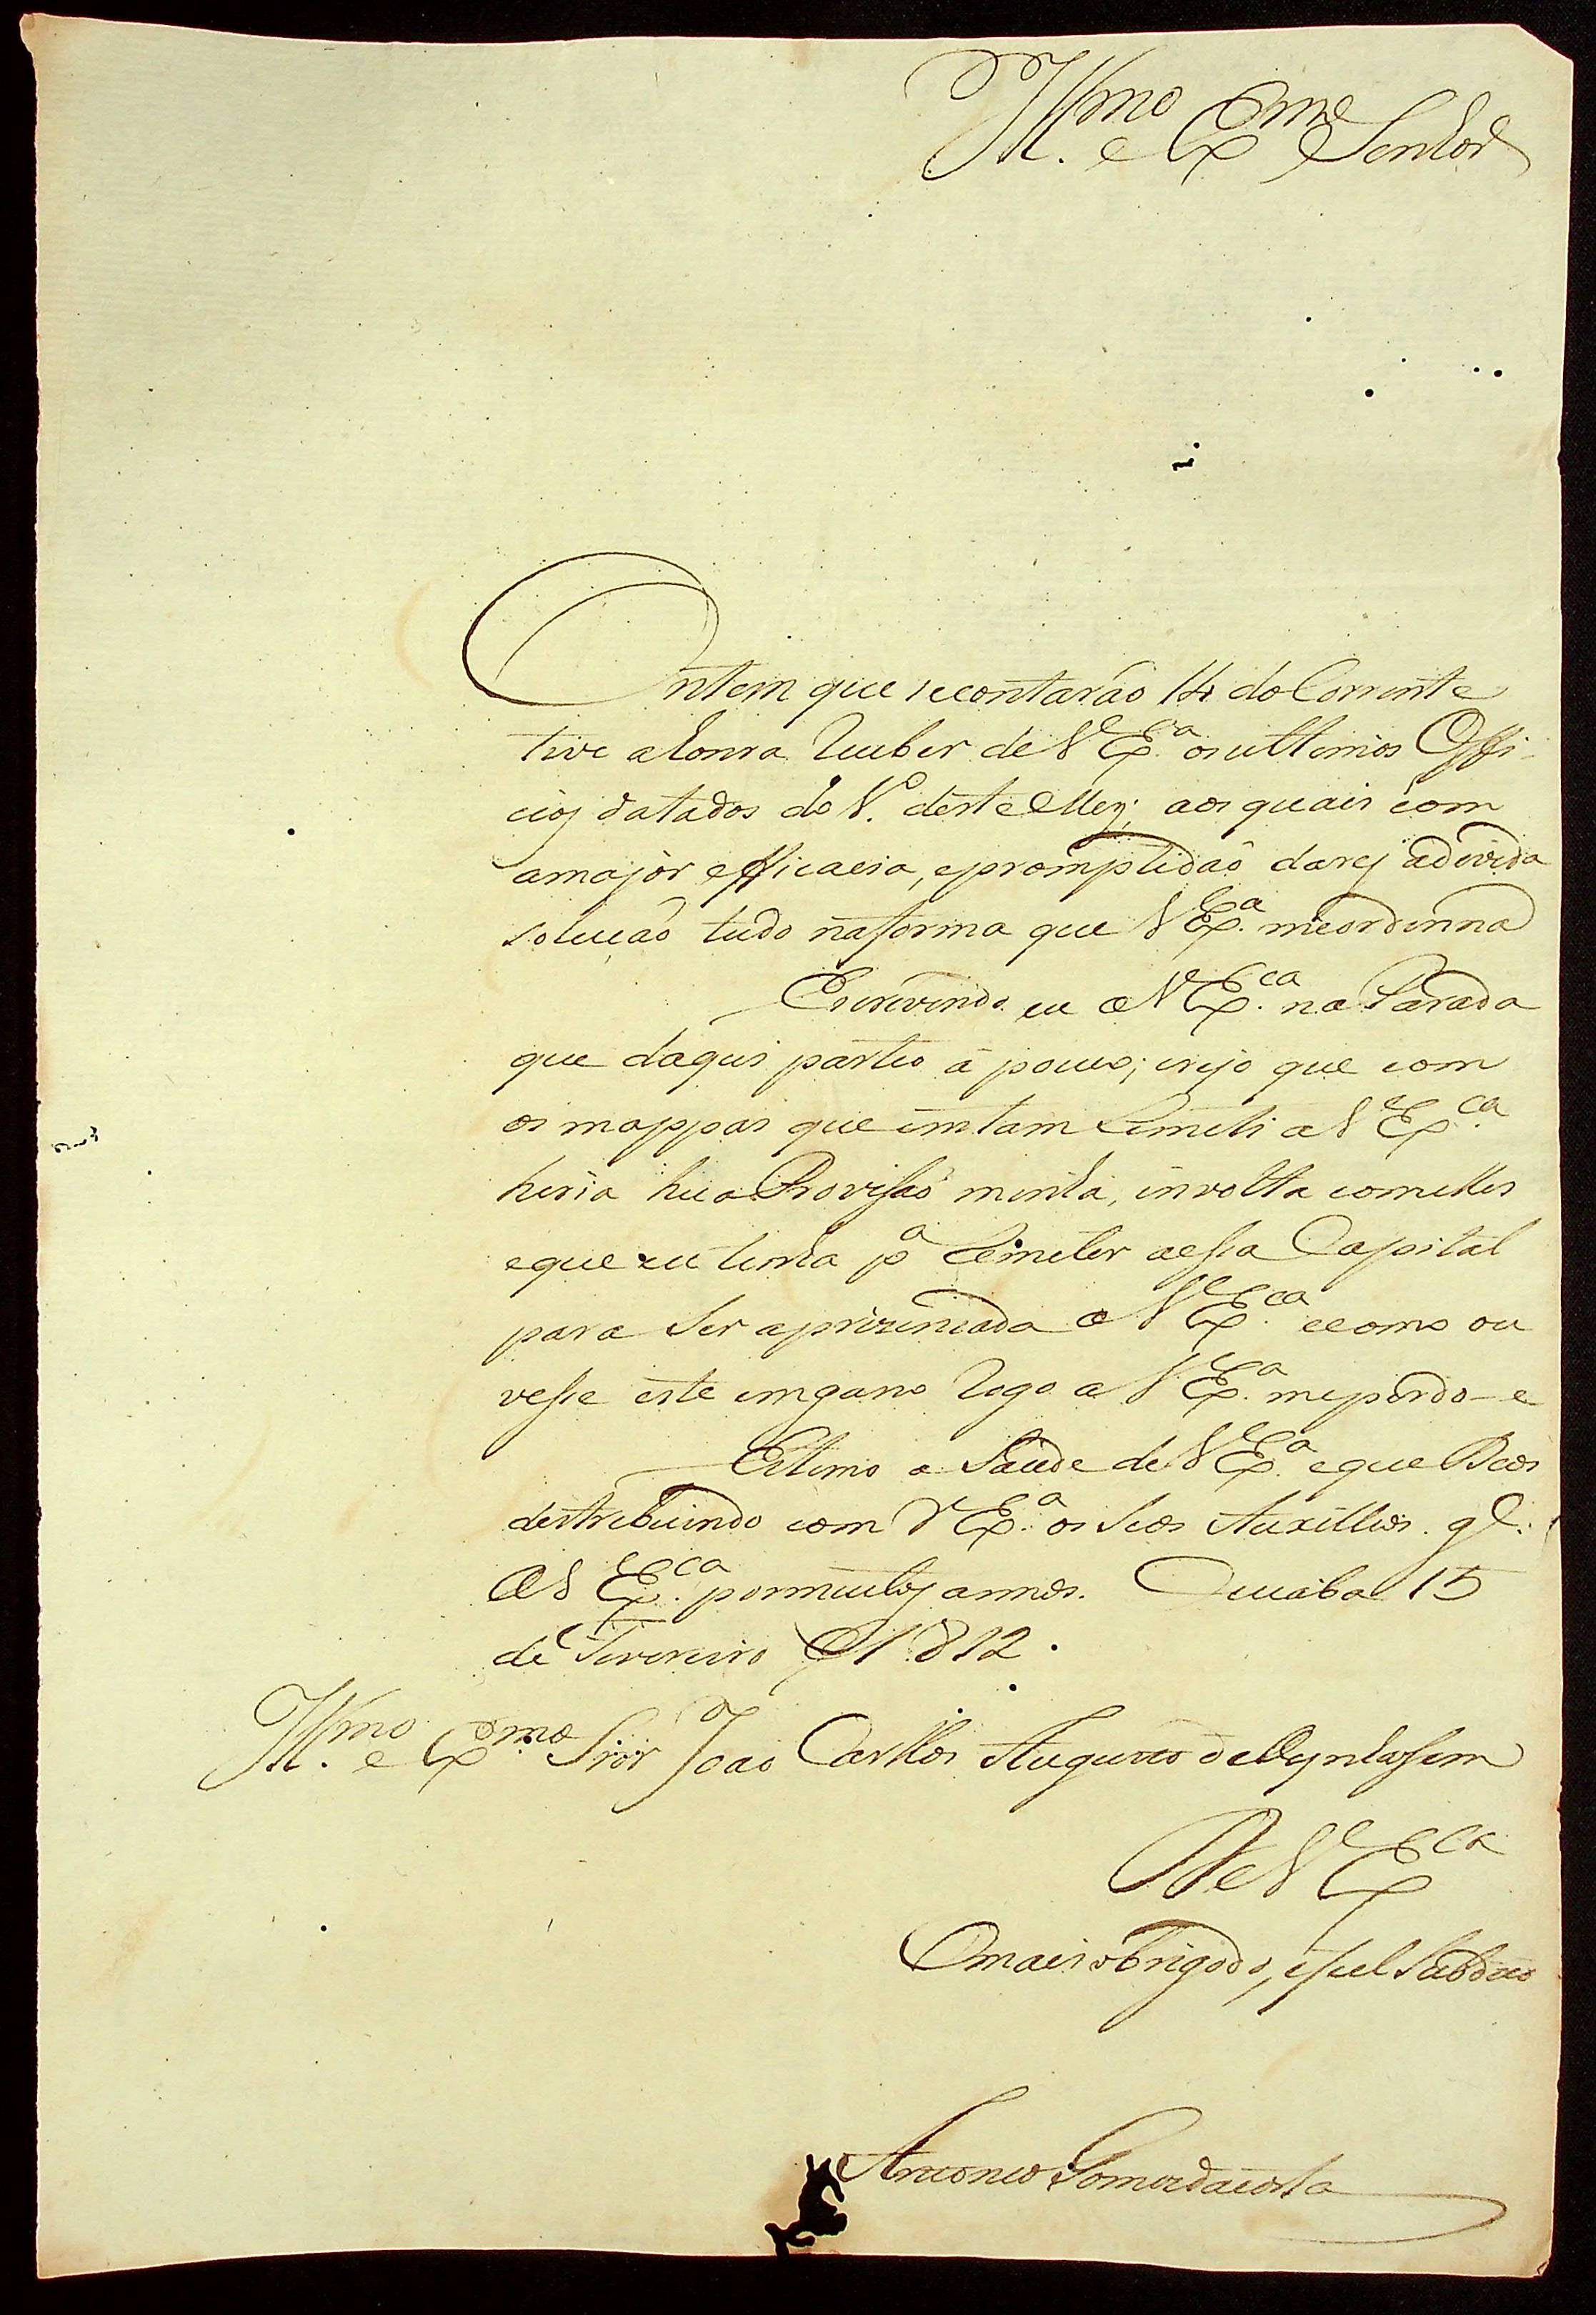 Illmo e Exmo Senhor
Ontem que secontaraõ 14 do Corrente
tive ahonra Receber de V Exa os ultimos Offi-
cios datados do 1o deste Mez; aos quais com
amajor efficacia, epromptidaõ darej adivida
soluçaõ tudo naforma que V Exa meordenna
Escrevendo eu a V Exca na Parada
que daqui partio á pouco; crejo que com
os mappas que emtam Remeti a V Exca
hiria hua Provisaõ minha, involta comelles
eque eu tinha pa Remeter aessa Capital
para Ser aprizentada a V Exca ecomo ou
vesse este emgano Rogo a V Exa meperdo-e
Estimo a Saude de V Exa eque Deos
destribuindo com V Exa os Seos Auxillios. ge.
A V Exca pormuitos annos. Cuiaba 15
de Fevereiro D 1812.
Illmo e Exmo Snor Joaõ Carllos Augusto deOynhassem
De V Exca
Omais obrigado, efiel Subdito
Antonio Gomesdacosta